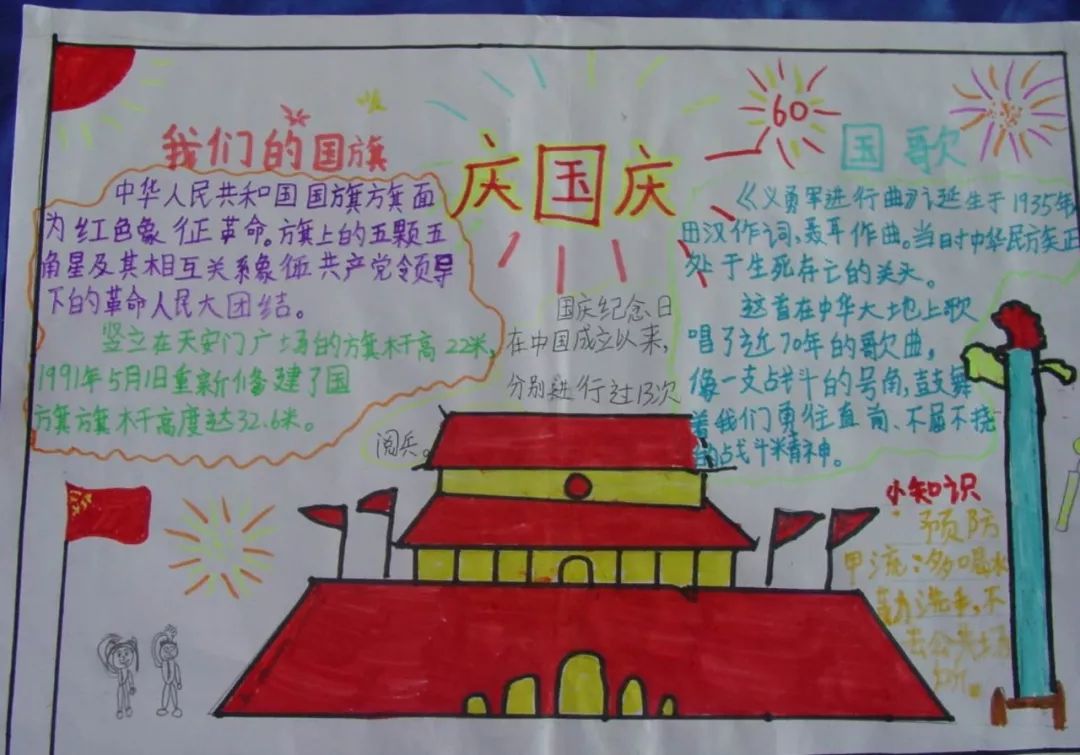 我们的国旗
中华人民共和国国旗旗面
为红色象征革命。旗上的五颗五
角星及其相互关系象征共产党领导
下的革命人民大团结。
竖立在天安门广场的旗杆高22米,
1991年5月1日重新修建了国
旗旗杆高度达32.6米。
庆国庆
60
国庆纪念日
在中国成立以来,
分别进行过13次
阅兵。
国歌
《义勇军进行曲》诞生于1935年
田汉作词,聂耳作曲。当时中华民族正
处于生死存亡的关头。
这首在中华大地上歌
唱了近70年的歌曲,
像一支战斗的号角,鼓舞
着我们勇往直前、不屈不挠
的战斗精神。
小知识
预防
甲流:多喝水
勤洗手,不
去公共场
所。